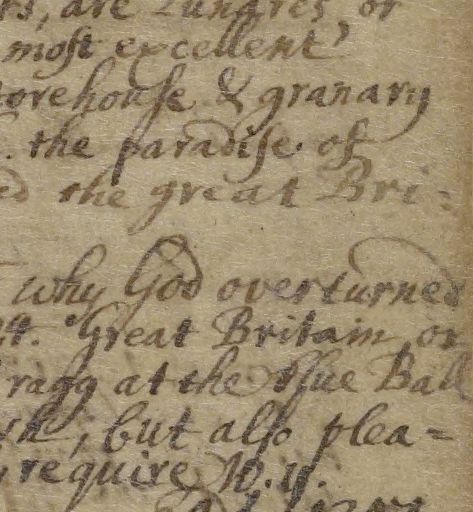 are Lundres or
most excellent
storehouse & granary
the paradise of
the great Bri-
why God overturned
Great Britain, or
ragg at the Blue Ball
but also plea=
require W. y.